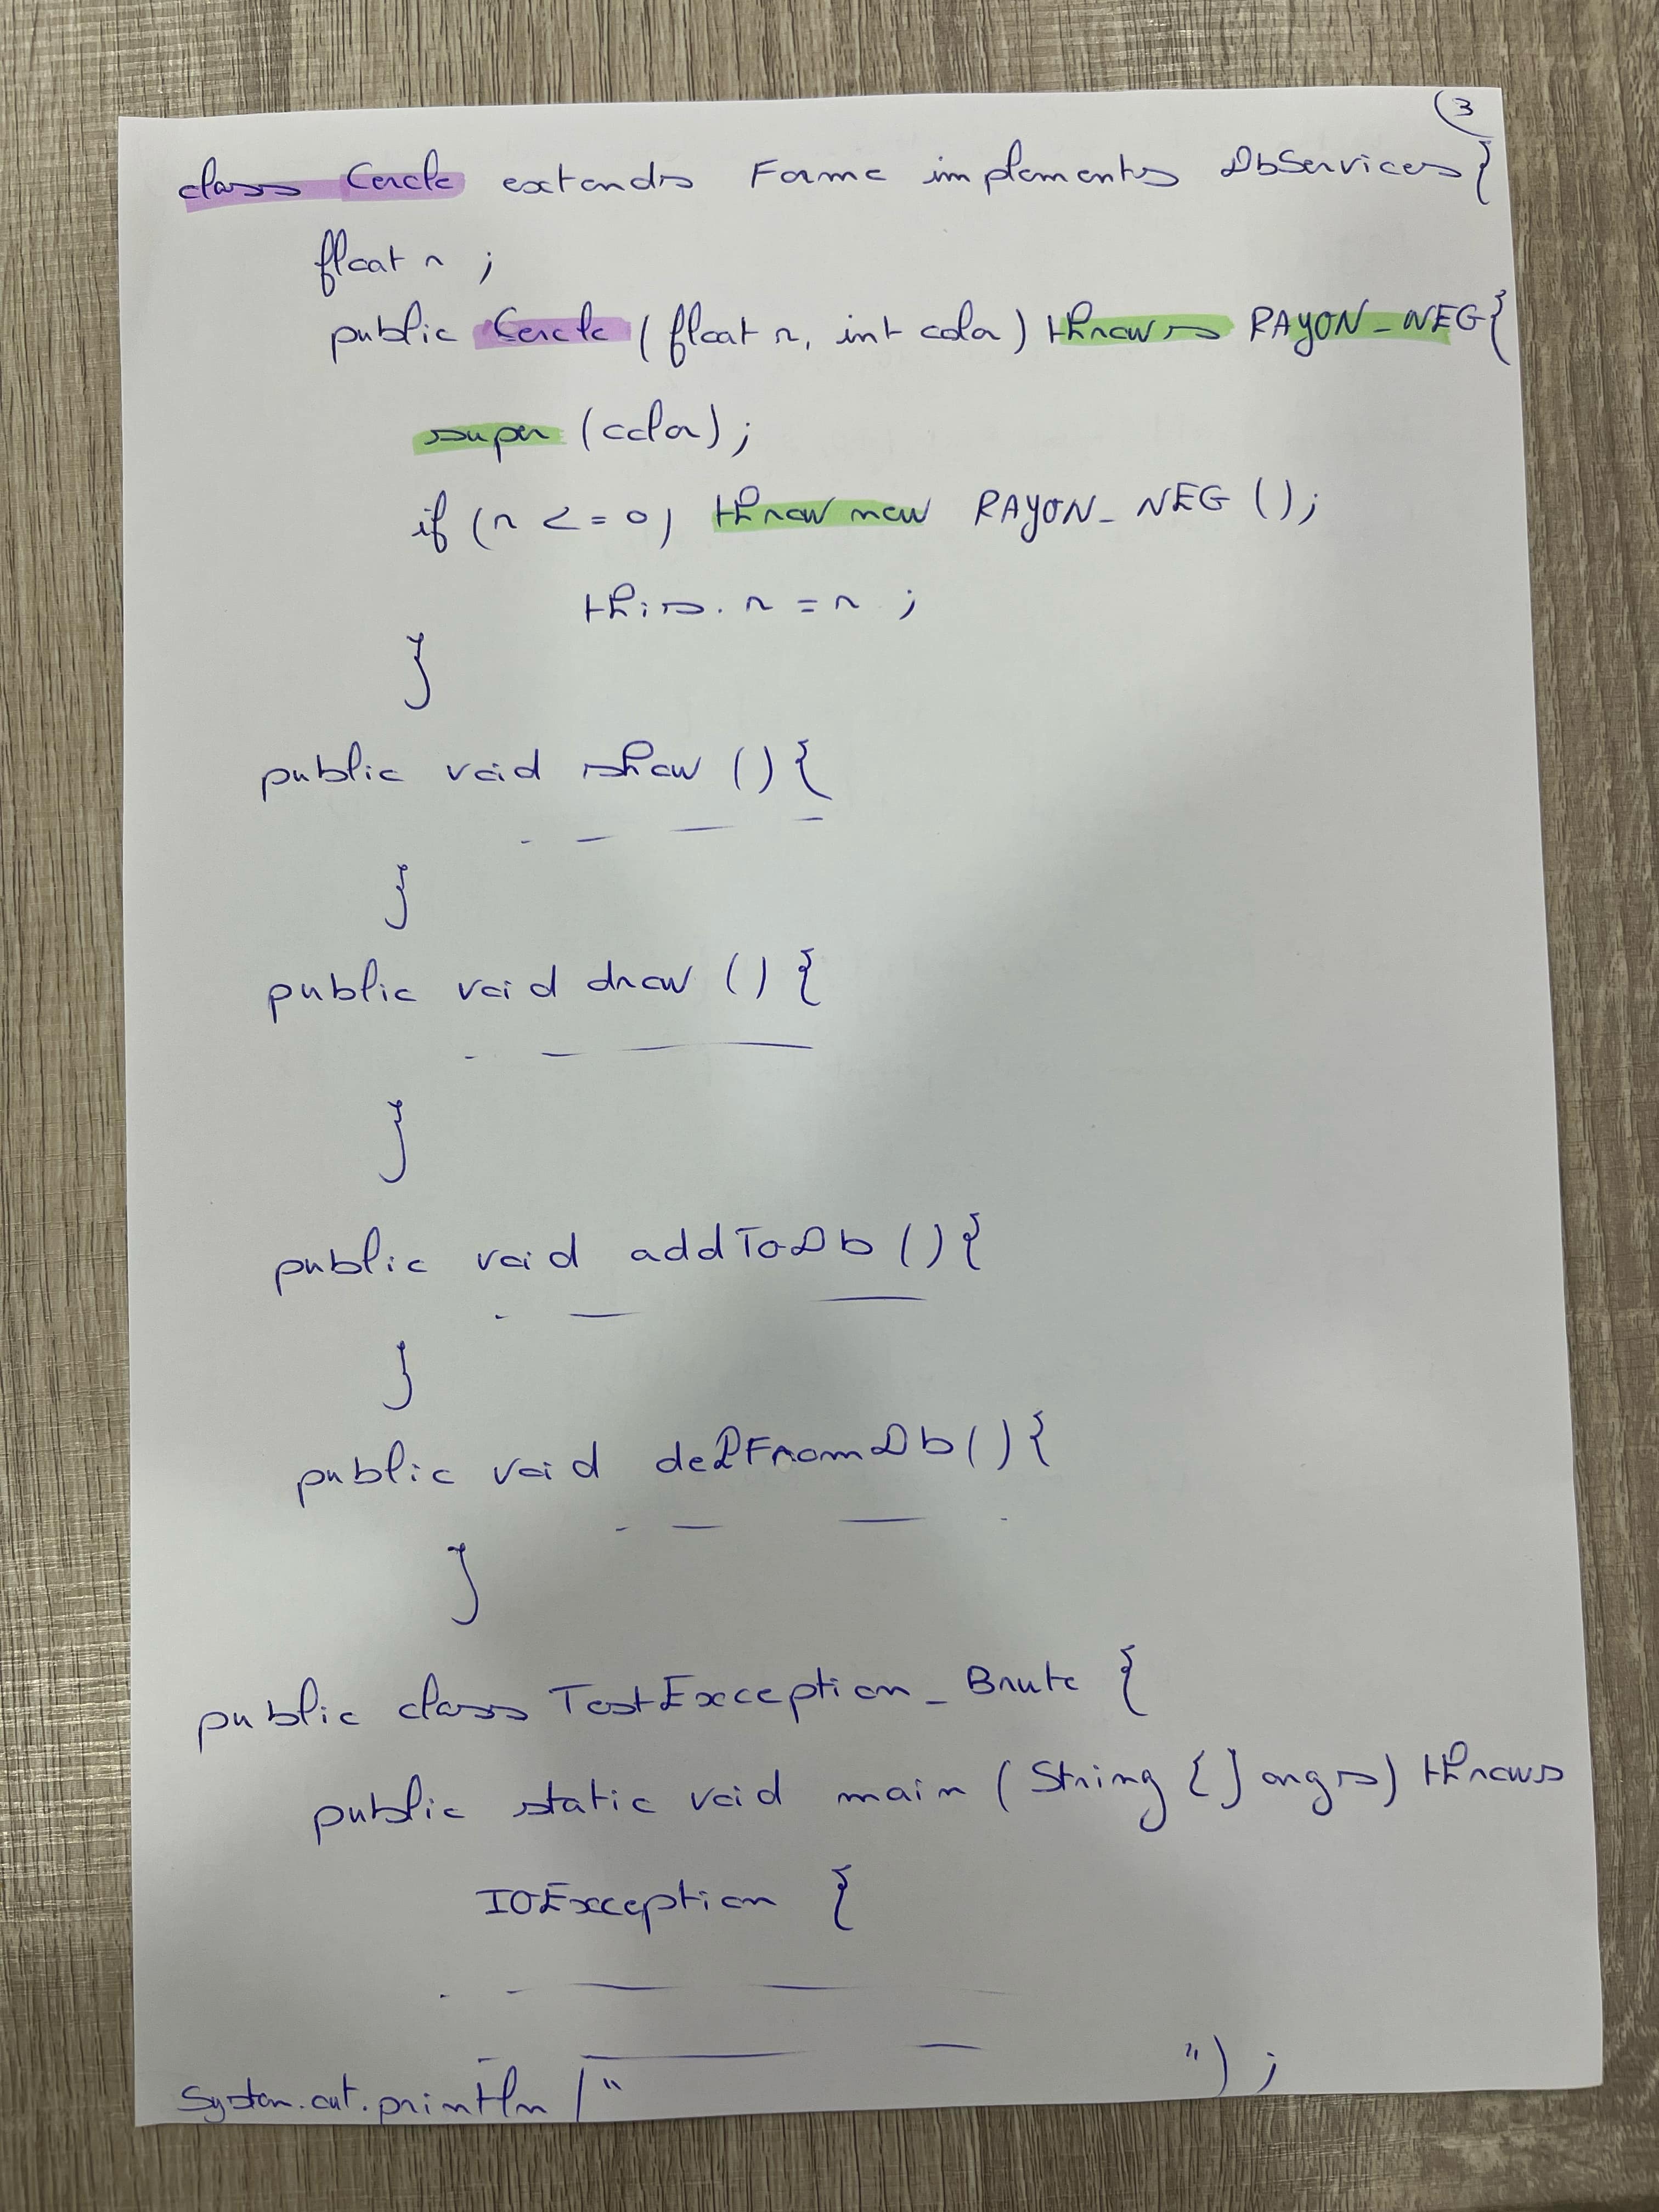 (3
class Cercle extends Forme implements DbServices{
float r ;
public Cercle (float r, int color) throws RAYON_NEG{
super (color);
if (r <= 0) throw new RAYON_NEG ();
this.r = r ;
}
public void show (){
}
public void draw (){
}
public void addToDb (){
}
public void delFromDb(){
}
public class TestException_Brute {
public static void main (String [] args) throws
IOException {
System.out.println (" ") ;